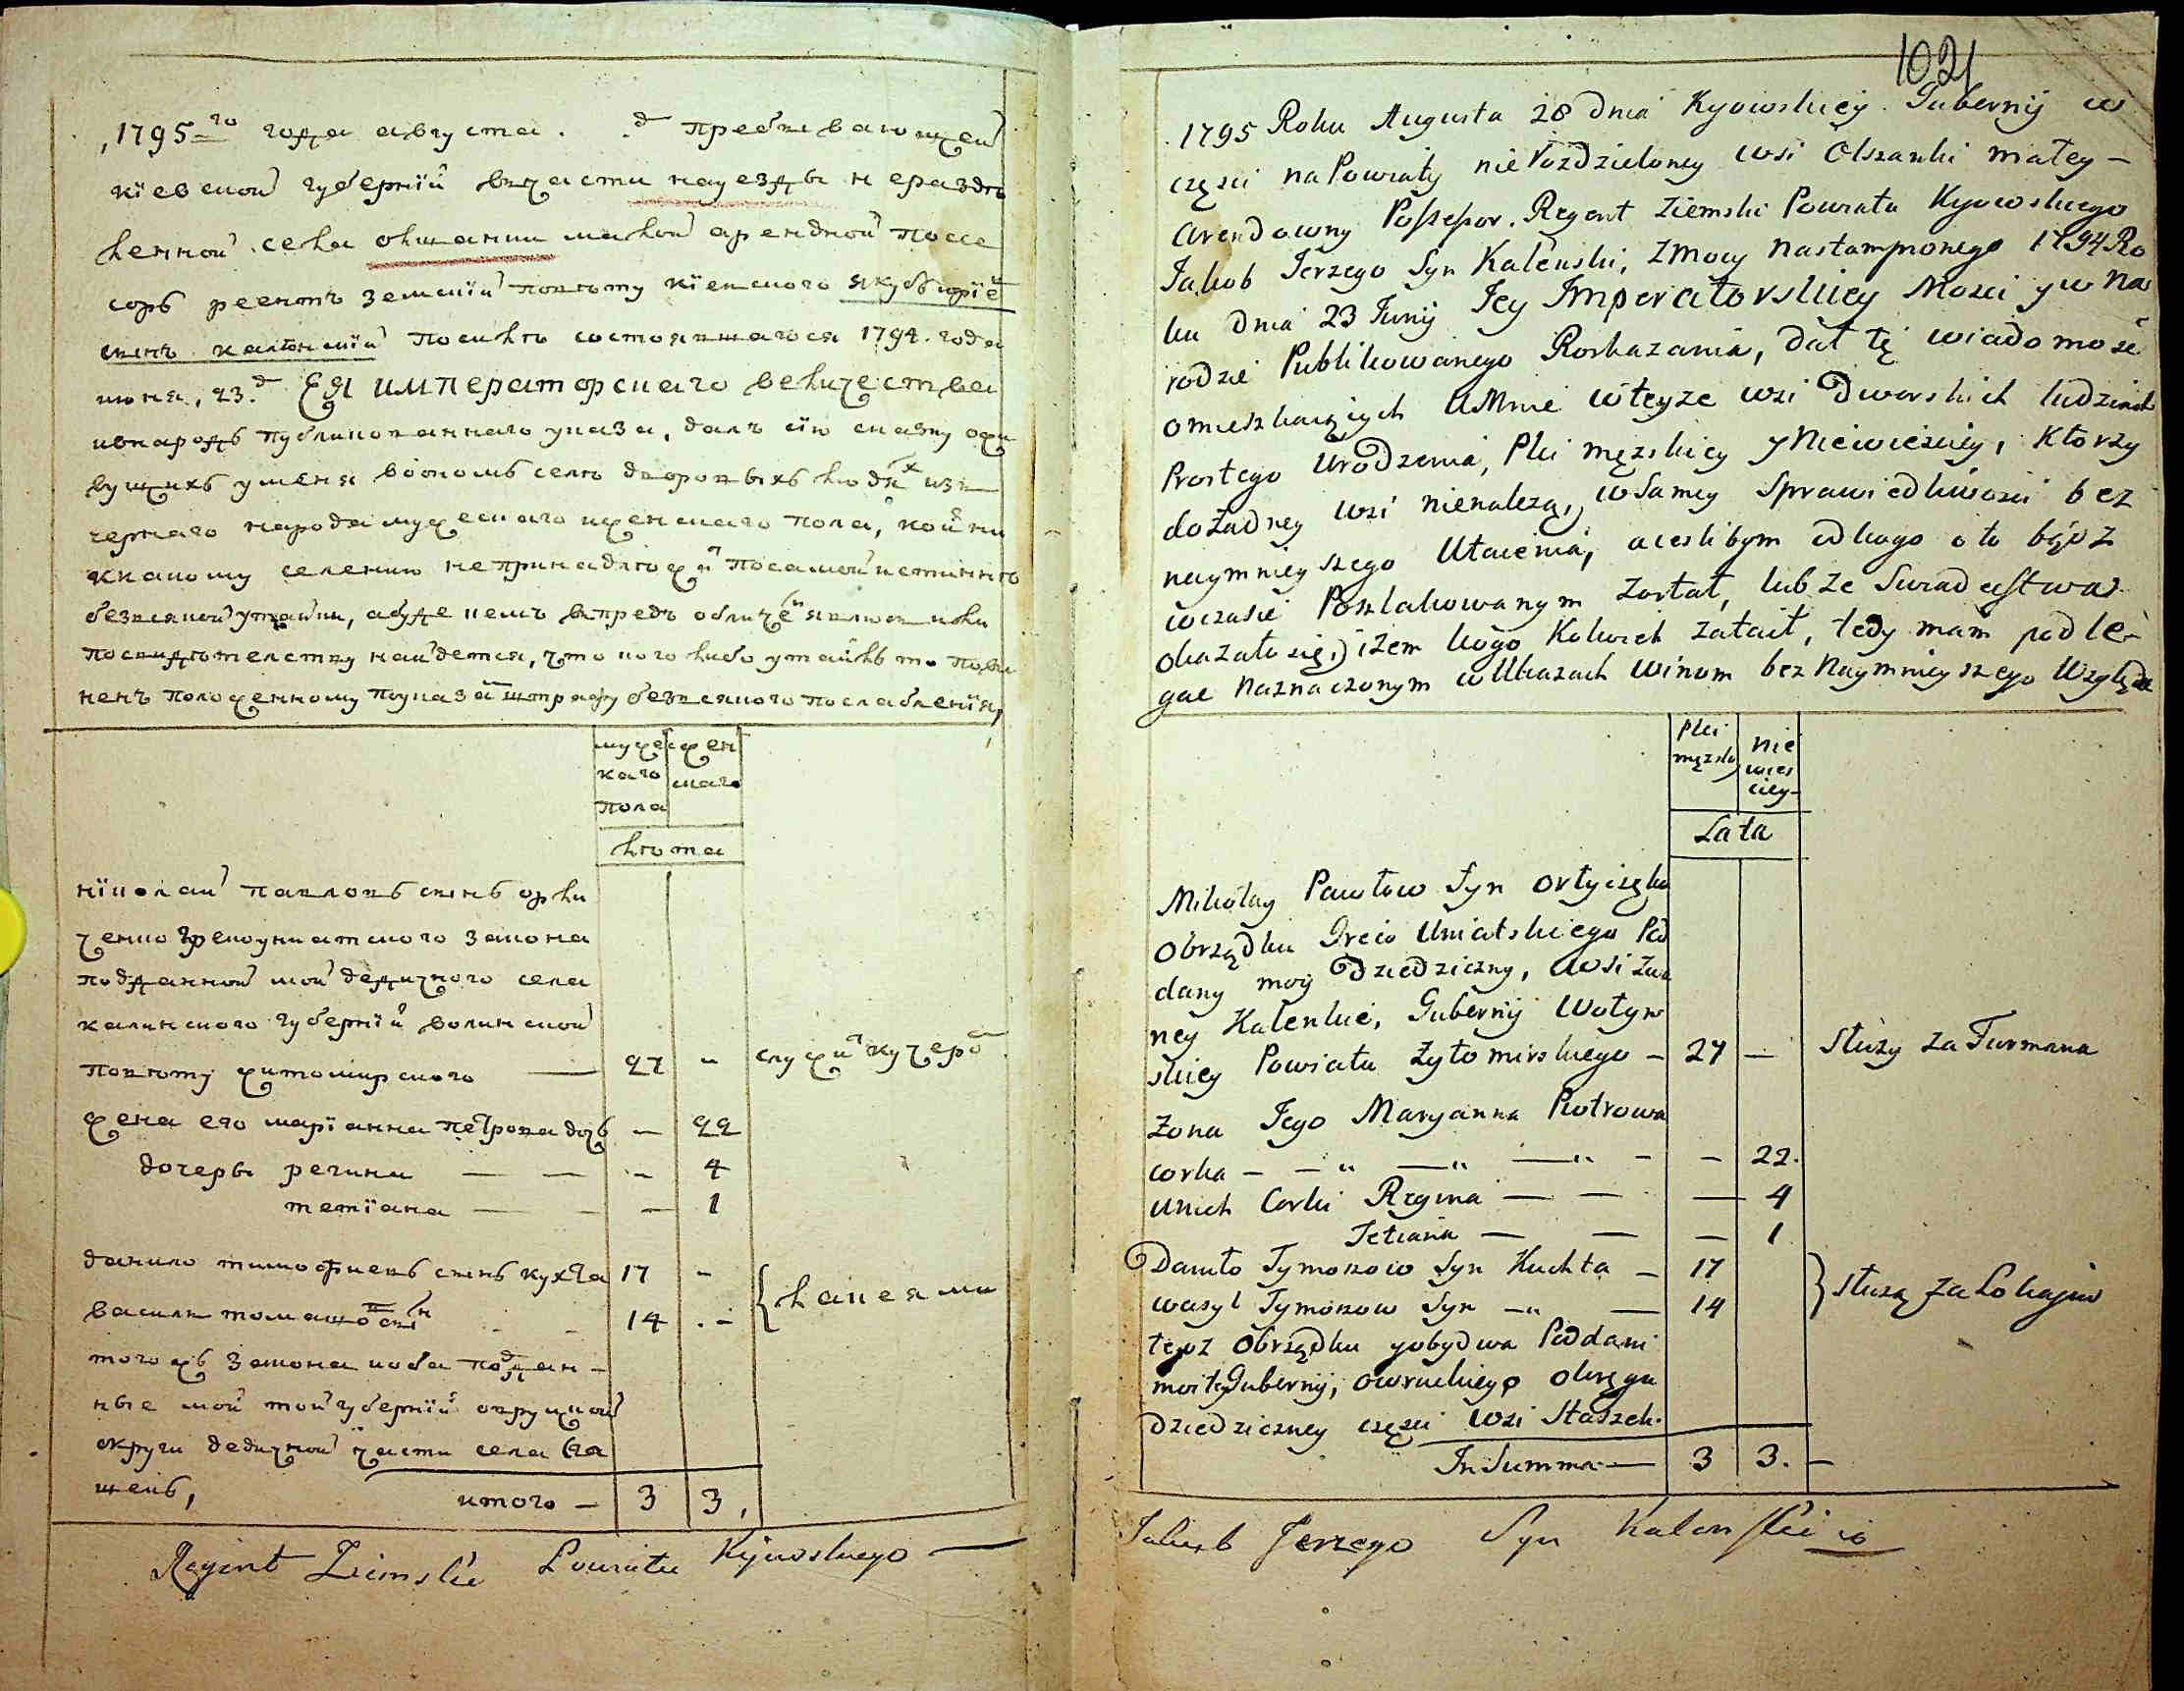 1795го года августа . д пребывающей
кїевской губернїи вчасти науезды нераздѣ
ленной села олшанки малой арендной поссе
соръ реентъ земскїй повѣту кїевского якубъ юрїе
сынъ каленскїй посилѣ состоявшагося 1794. года
июня, 23.д Ея императорскаго величества
ивнародъ публикованнаго указа, далъ сїю сказку ожи
вущихъ уменя воономъ селѣ дворовыхъ людях из
чернаго народа мужескаго иженскаго пола, кои ни
ккакому селению непринадлѣжат посамой истиннѣ
безвсякой утайки, абуде кемъ впредъ обличен явлюсь или
посвидѣтелству найдется, что кого либо утаилъ то пови
ненъ положенному поуказам штрафу безвсякого послабленїя,
мужес жен
каго скаго
пола
лѣта
нїколай павловъ сынъ орли
ченко грекоуниатского закона
подданной мой дедичного села
калинского губернїи волинской
повѣту житомирского — 27 - служит кучером
жена его марїанна петрова дочъ — 22
дочеры регина — — — 4
тетїана — - — 1
данило тимофиевъ сынъ кухта 17 -
василь томашов сын 14 . - лакеями
тогожъ закона иоба поддан-
ные мои той губернїи овруцкой
округи дедичной части села ста
шекъ, итого — 3 3,
Regent Ziemski Powiatu Kijowskiego —
1021
1795 Roku Augusta 28 dnia Kyowskiey Gubernij w
częsci na Powiaty nierozdzieloney wsi Olszanki małey —
Arendowny Possessor. Regent Ziemski Powiatu Kyowskiego
Jakob Jerzego Syn Kaleński, Zmocy nastampionego 1794 Ro
ku dnia 23 Junij Jey Imperatorskiey Mosci y w na
rodzie Publikowanego Roskazania, dał tę wiadomość
omieszkaiących UMnie wteyze wsi dworskich ludziach
Prostego Urodzenia, Płci męzskiey y Niewiesciey, Ktorzy
dożadney wsi nienalezą, wSamey Sprawiedliwosci bez
naymnieyszego Utaienia, aieslibym odkogo oto bądz
wczasie Poszlakowanym został, lub ze Swiadectwa
okazało się, iżem kogo Kolwiek zataił, tedy mam podle-
gac naznaczonym wUkazach winom bez Naymnieyszego Względu
Płci
męzskiey
nie
wies
ciey-
Lata
Mikołay Pawłow Syn Orłyczęko
Obrządku Greco Uniatskiego Pod
dany moy Dziedziczny, wsi Zwa
ney Kalenkie, Gubernij Wołyn
skiey Powiatu Zytomirskiego — 27 — Służy za Furmana
Zona Jego Maryanna Piotrowa
corka — — " — " — " - — 22.
Unich Corki Regina — — — 4
Tetiana — — — 1
Daniło Tymoszow Syn Kuchta — 17
wasyl Tymoszow Syn — " — 14 Służą za Lokajow
tegoz Obrządku yobydwa Poddani
moi teyGubernij, owruckiego okręgu
dziedziczney częsci wsi Staszek.
In Summa — 3 3. —
Jakub Jerzego Syn Kalenski